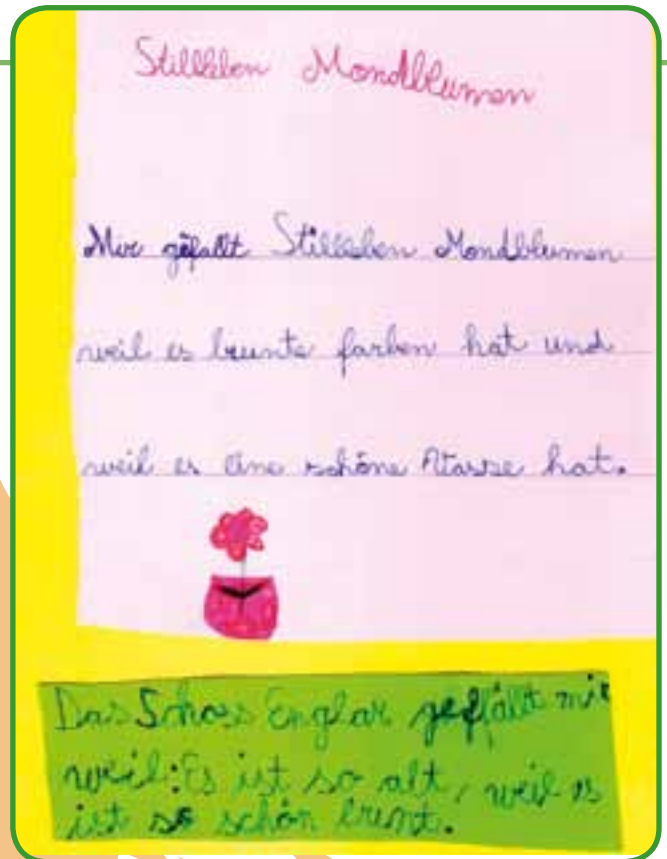 Stillleben Mondblumen
Mir gefällt Stillleben Mondblumen
weil es bunte farben hat und
weil es eine schöne Wasse hat.
Das Schoss Englar gefällt mir
weil: Es ist so alt, weil es
ist so schön bunt.